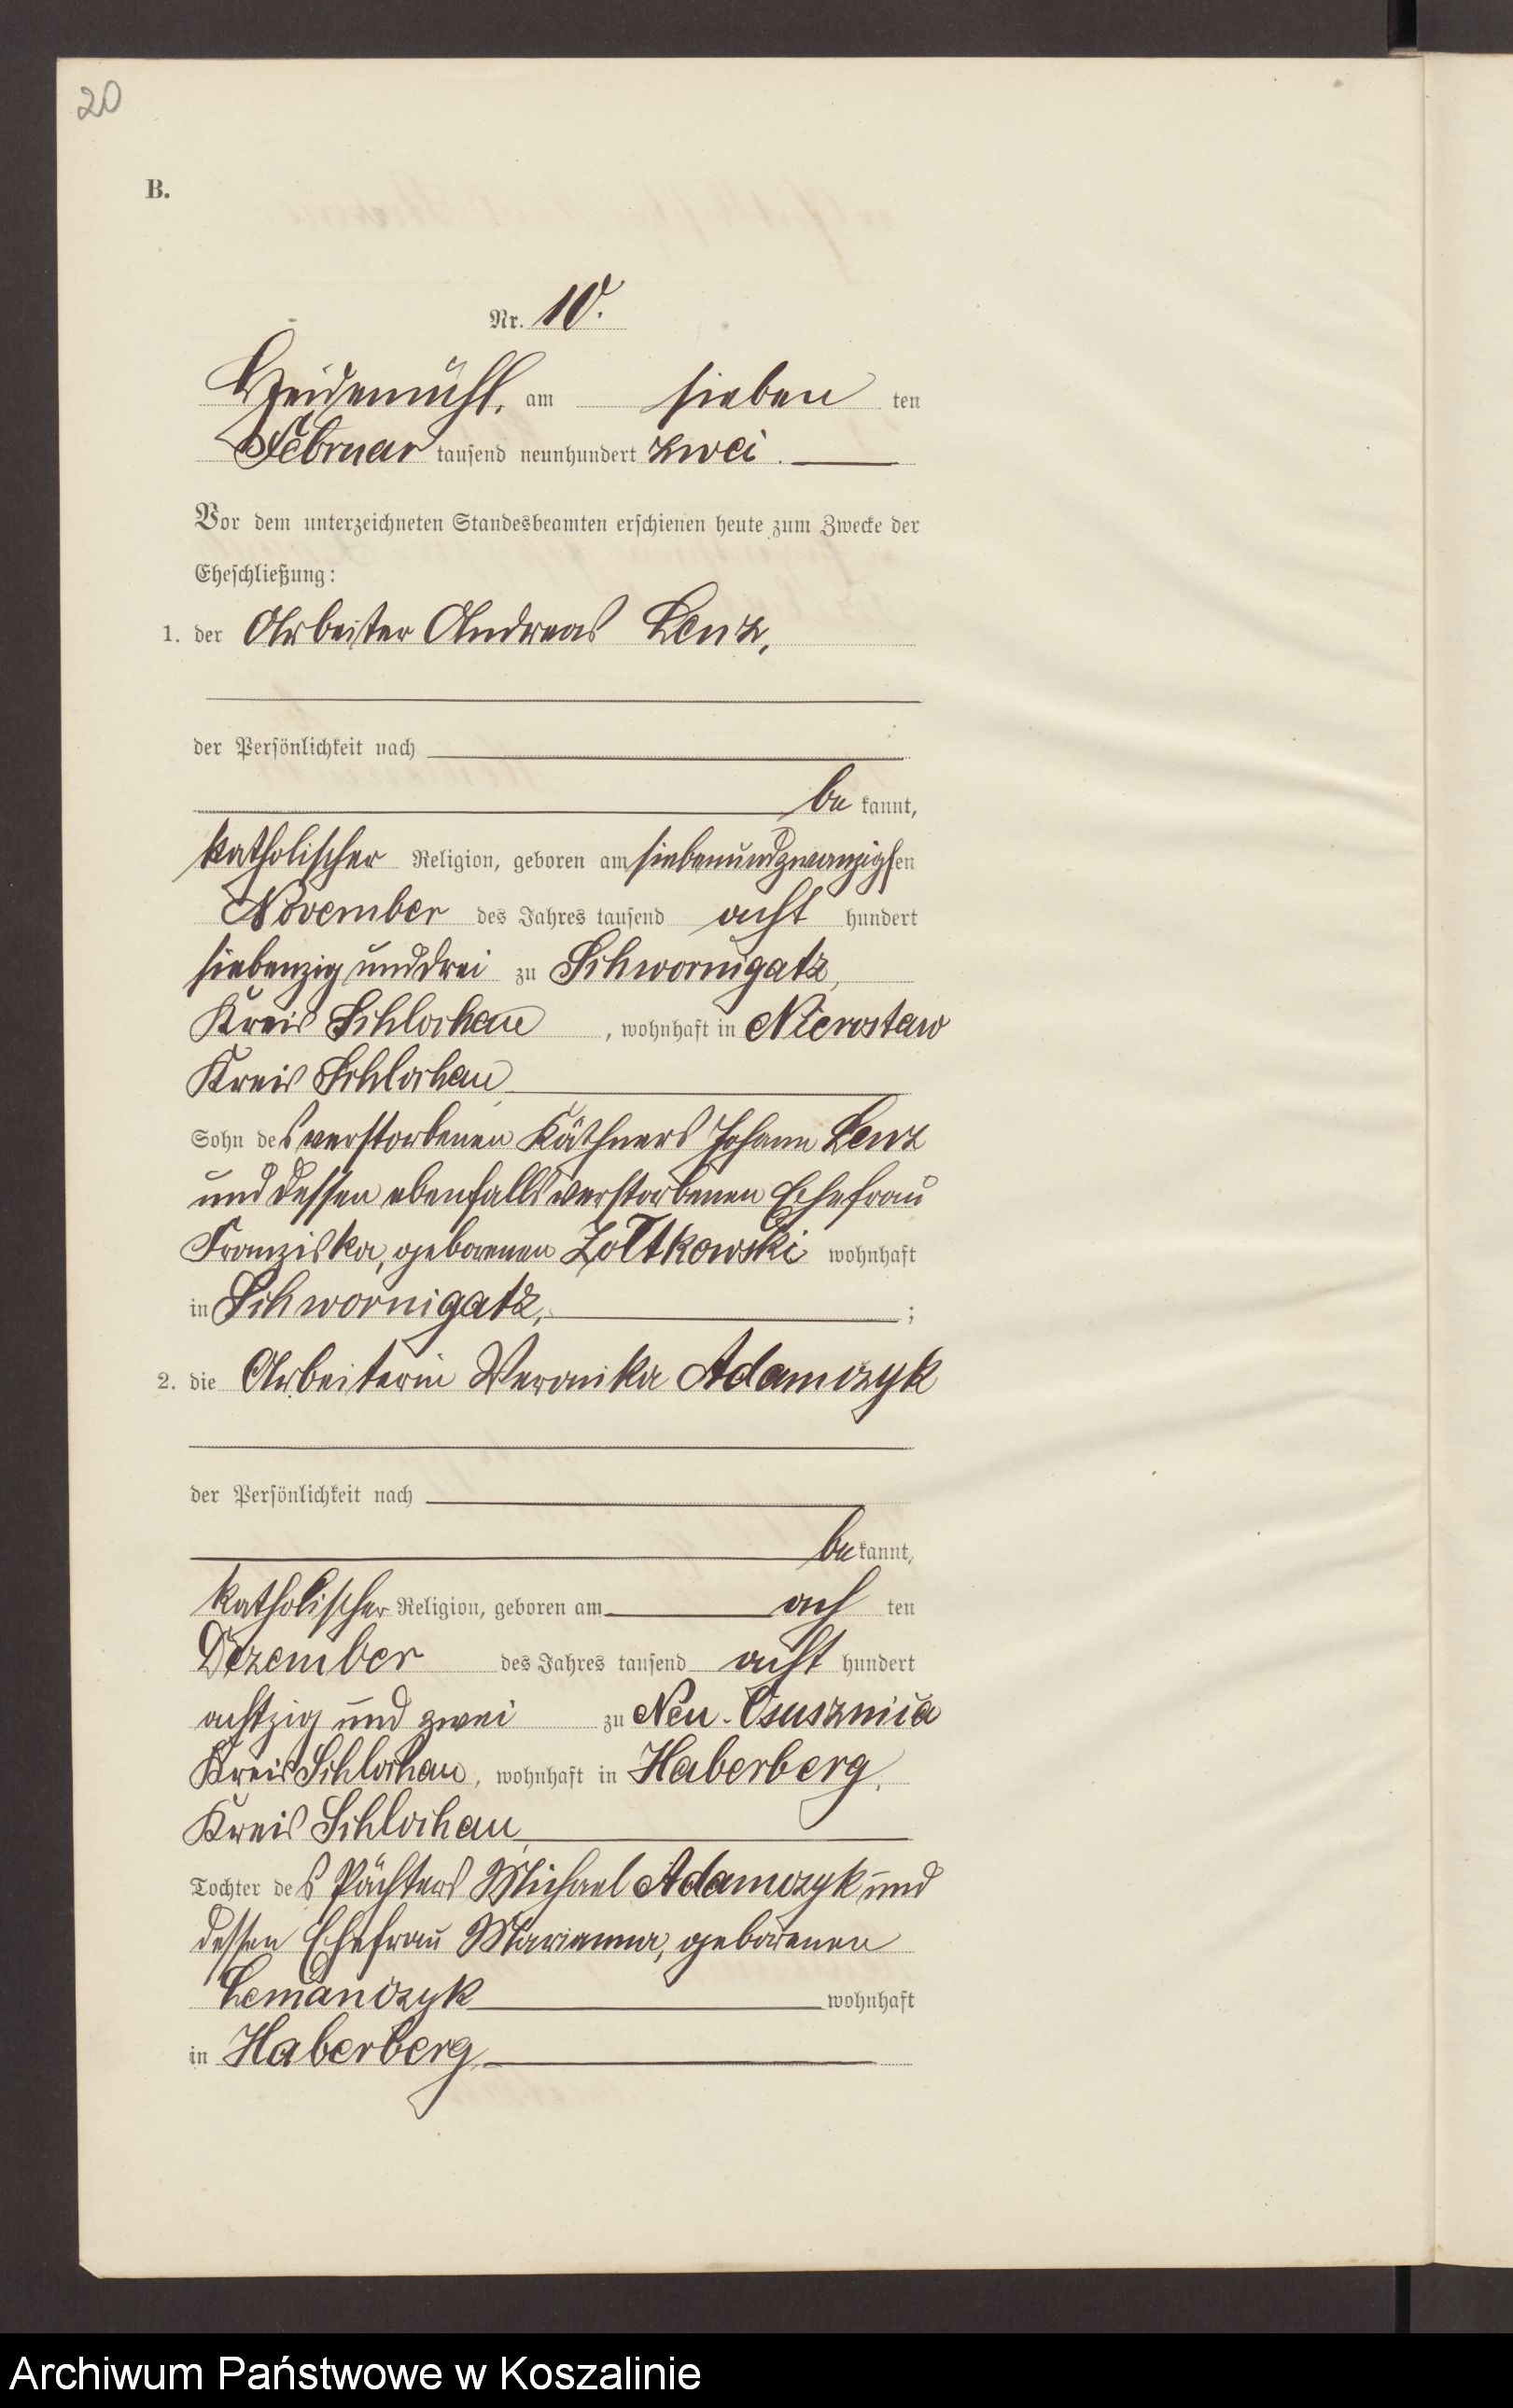 20
B.
Nr. 10.
Heidemühl, am sieben ten
Februar tausend neunhundert zwei.
Vor dem unterzeichneten Standesbeamten erschienen heute zum Zwecke der
Eheschließung:
1. der Arbeiter Andreas Lenz,
der Persönlichkeit nach
be kannt,
katholischer Religion, geboren am siebenundzwanzigsten
November des Jahres tausend acht hundert
siebenzig und drei zu Schwornigatz,
Kreis Schlochau, wohnhaft in Nierostaw
Kreis Schlochau
Sohn des verstorbenen Käthners Johann Lenz
und dessen ebenfalls verstorbenen Ehefrau
Franziska, geborenen Zoltkowski wohnhaft
in Schwornigatz, ;
2. die Arbeiterin Veronika Adamczyk
der Persönlichkeit nach
be kannt,
katholischer Religion, geboren am ach ten
Dezember des Jahres tausend acht hundert
achtzig und zwei zu Neu-Osusznica
Kreis Schlochau, wohnhaft in Haberberg,
Kreis Schlochau
Tochter des Pächters Michael Adamczyk und
dessen Ehefrau Marianna, geborenen
Lemanczyk wohnhaft
in Haberberg
Archiwum Państwowe w Koszalinie